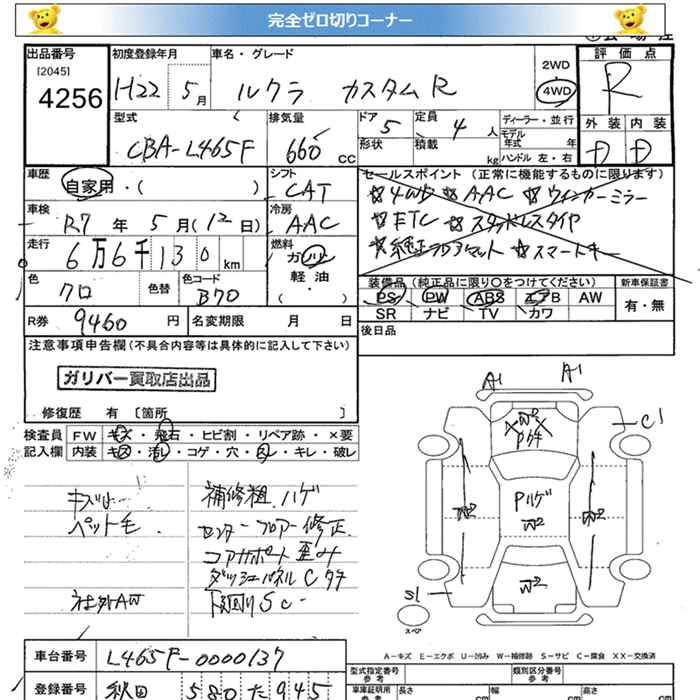 完全ゼロ切りコーナー
出品番号
[2045]
4256
初度登録年月
H22 5月
車名・グレード
ルクラ カスタムR
2WD
4WD
評価点
R
外装 内装
D D
型式
CBA-L465F
排気量
660 cc
ドア 5
形状
定員 4 人
積載 kg
ディーラー・並行
モデル年式 年式
ハンドル 左・右
車歴
自家用・( )
車検
R7年 5月(12日)
走行
6万6千130km
色
クロ
色替
色コード
B70
シフト
CAT
冷房
AAC
燃料
ガソリン
軽油
( ・ )
セールスポイント(正常に機能するものに限ります)
☆4WD ☆AAC ☆ウィンカーミラー
☆ETC ☆スタッドレスタイヤ
☆純正フロアマット ☆スマートキー
装備品(純正品に限り○をつけてください)
新車保証書
PS PW ABS エアB AW
SR ナビ TV カワ
有・無
R券 9460 円
名変期限 月 日
後日品
注意事項申告欄(不具合内容等は具体的に記入して下さい)
ガリバー買取店出品
修復歴 有 〔箇所 〕
検査員 FW キズ・飛石・ヒビ割・リペア跡・×要
記入欄 内装 キズ・汚レ・コゲ・穴・スレ・キレ・破レ
補修粗、ハゲ
ペット毛
センターフロアー修正
コアサポート歪み
ダッシュパネルCタテ
社外AW
下廻りSC
A1 A1
C1
W2
P64
W2
Pハゲ
W2
W2
W2
S1
スペア
A-キズ E-エクボ U-凹み W-補修跡 S-サビ C-腐食 XX-交換済
車台番号
L465F-0000137
登録番号
秋田 580 た 945
型式指定番号
類別区分番号
車庫証明用参考
長さ cm
幅 cm
高さ cm